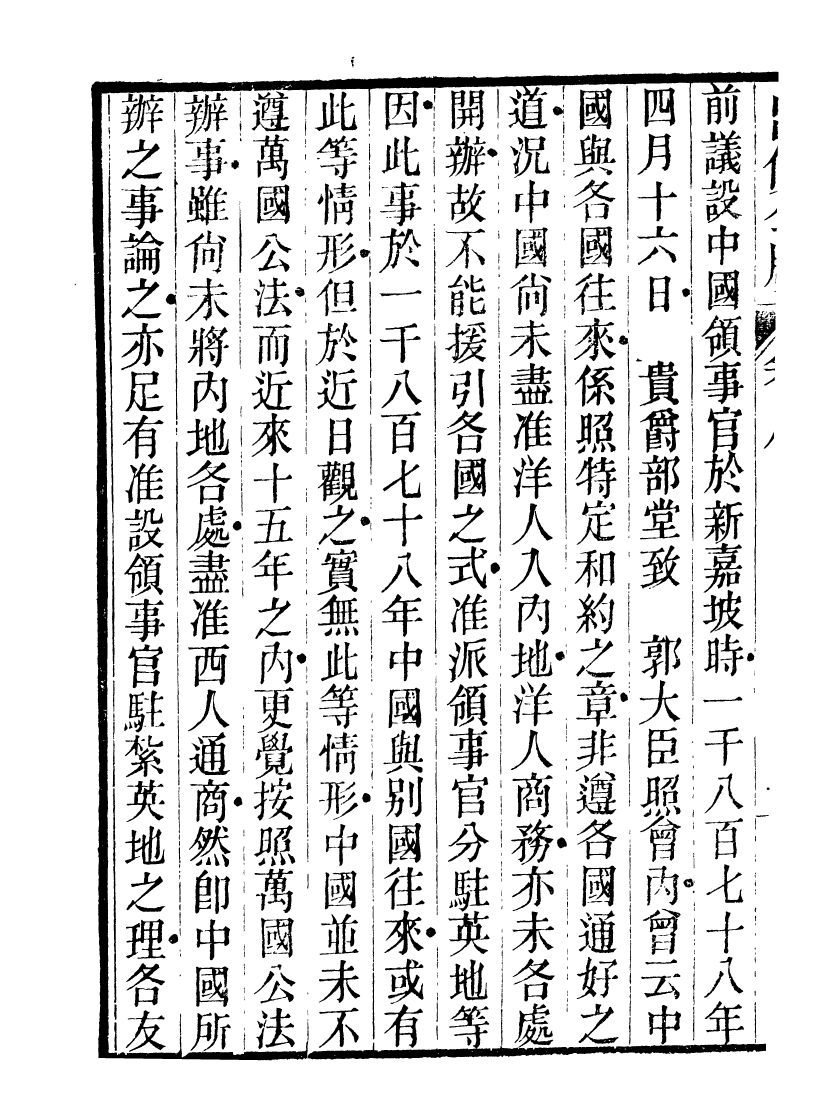 前議設中國領事官於新嘉坡時一千八百七十八年
四月十六日　貴爵部堂致　郭大臣照會內曾云中
國與各國往來係照特定和約之章非遵各國通好之
道況中國尙未盡准洋人入內地洋人商務亦未各處
開辦故不能援引各國之式准派領事官分駐英地等
因此事於一千八百七十八年中國與別國往來或有
此等情形但於近日觀之實無此等情形中國並未不
遵萬國公法而近來十五年之內更覺按照萬國公法
辦事雖尙未將內地各處盡准西人通商然卽中國所
辦之事論之亦足有准設領事官駐紮英地之理各友